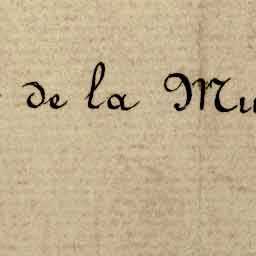 de la Mu